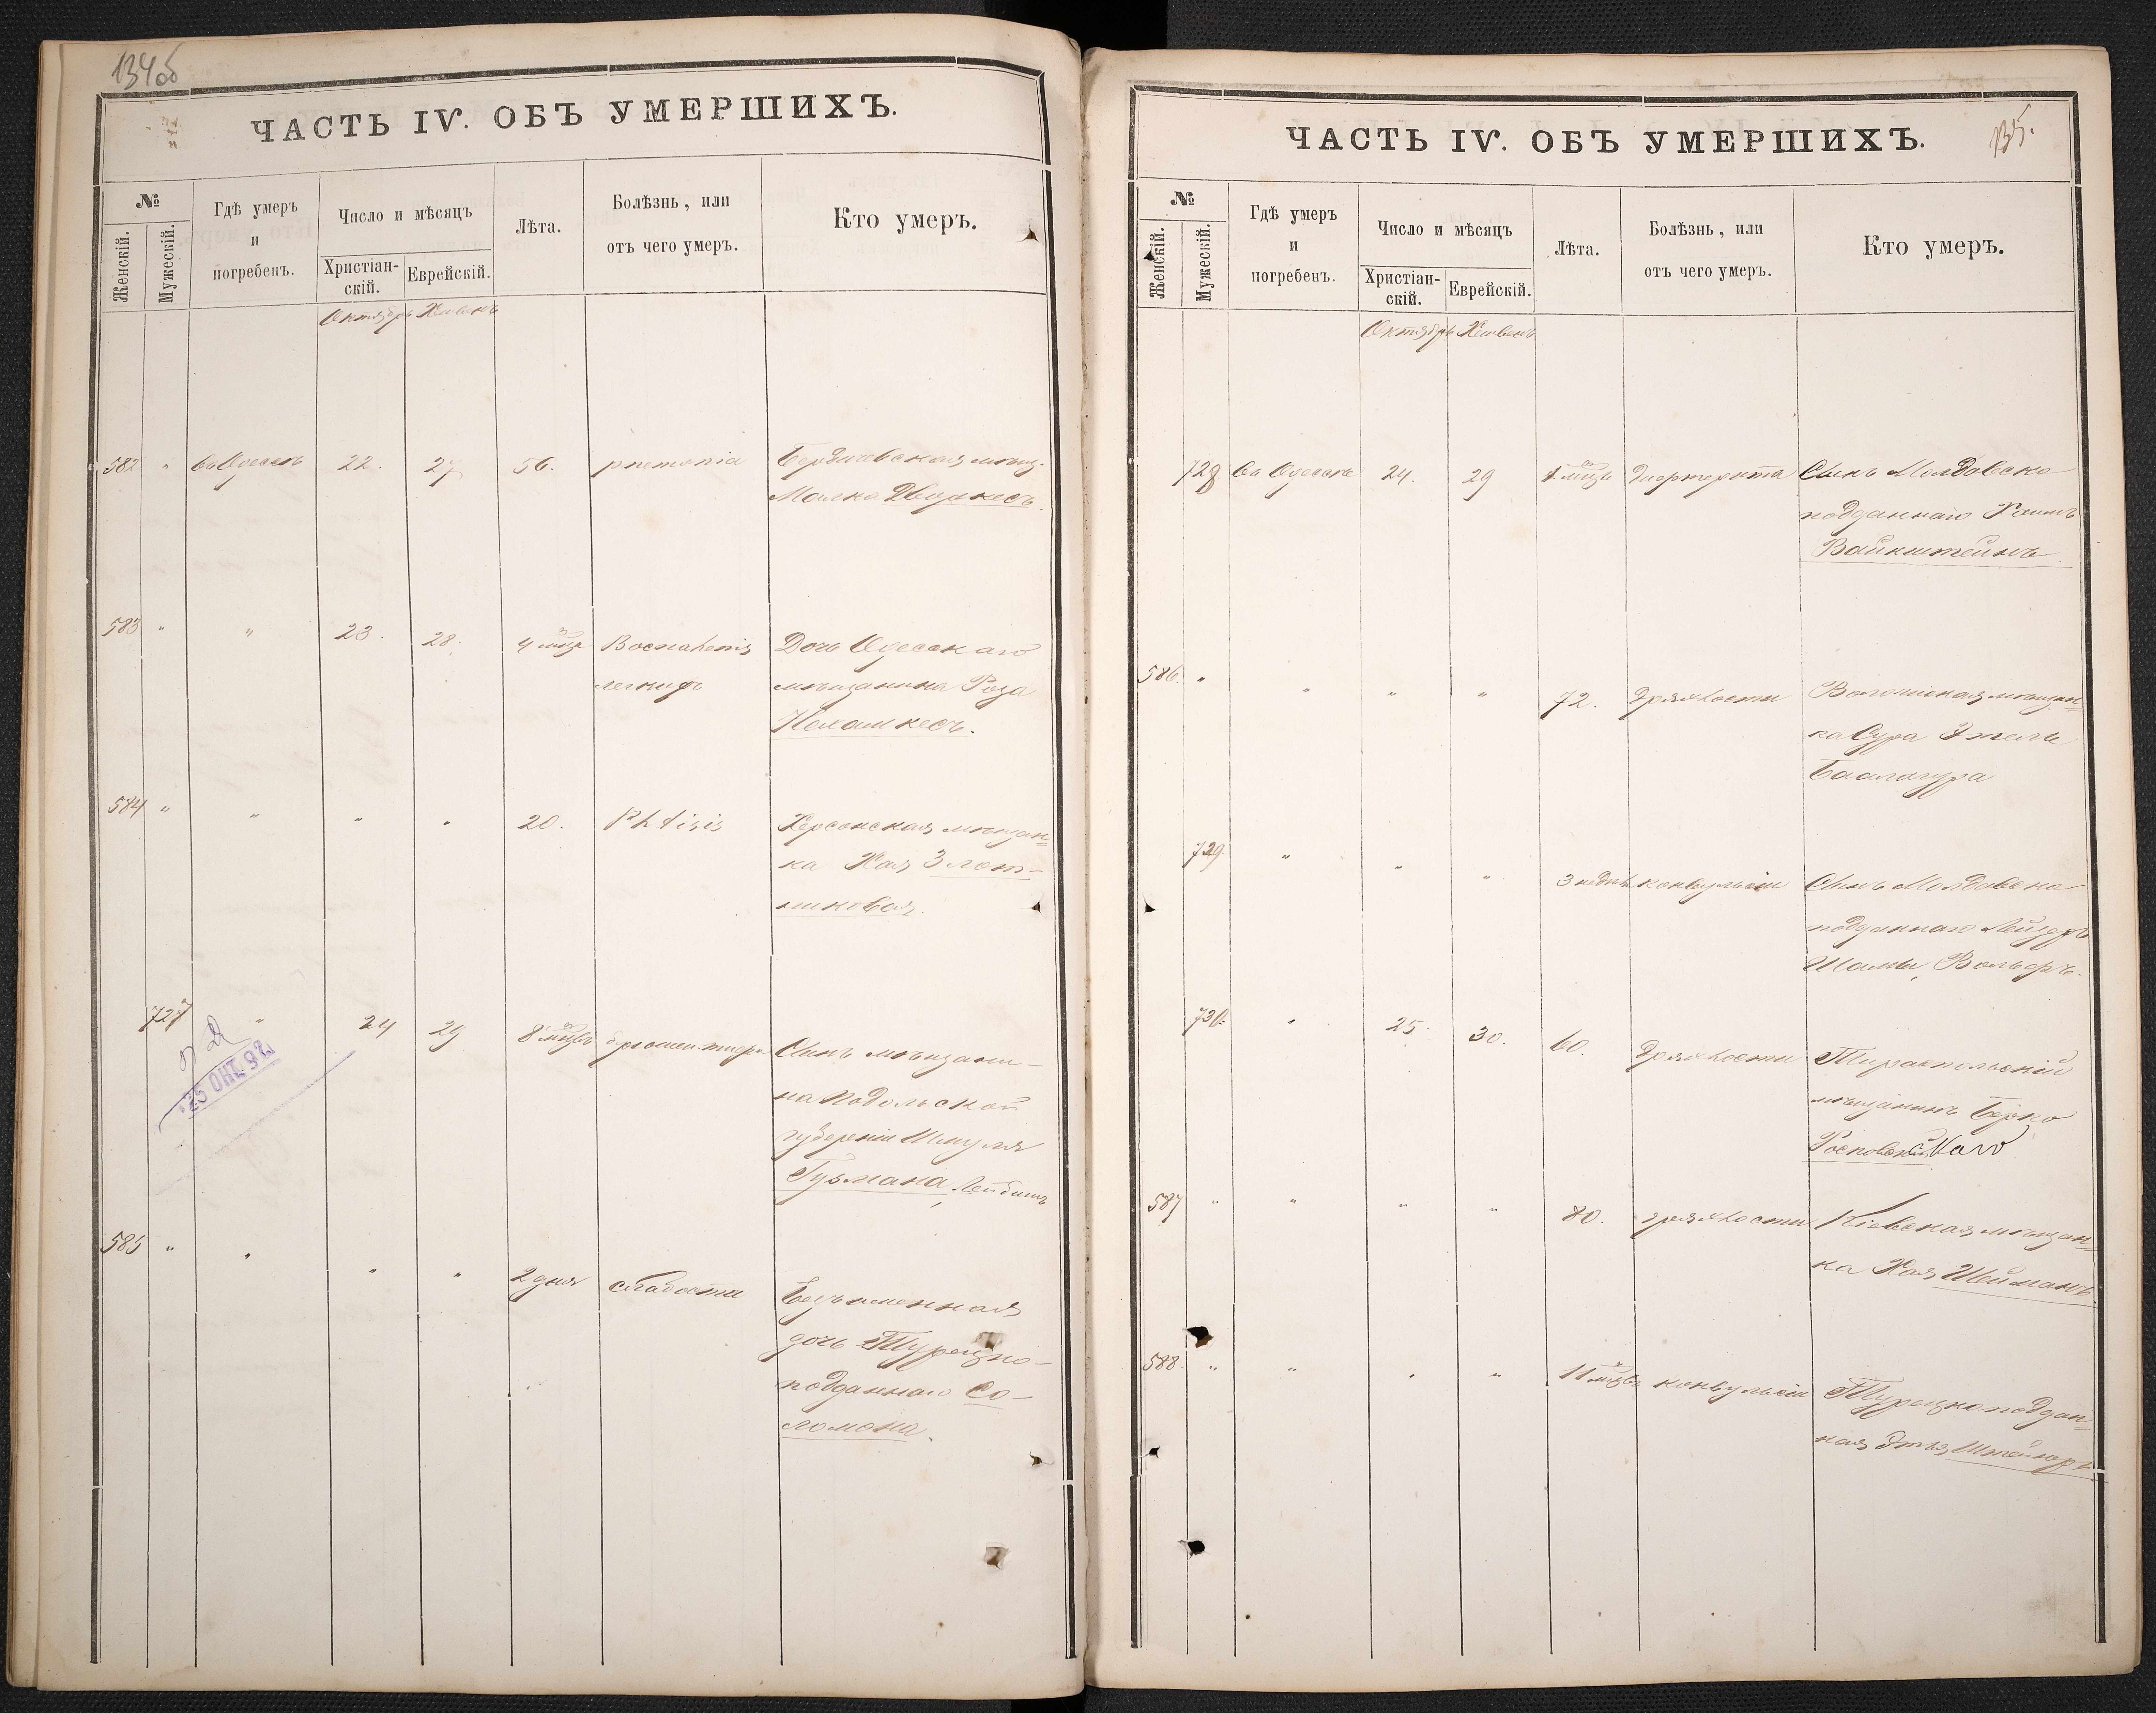 134об
ЧАСТЬ IV. ОБЪ УМЕРШИХЪ.
№
Женскій.
Мужескій.
Гдѣ умеръ
и
погребенъ.
Число и мѣсяцъ
Христіан-
скій.
Еврейскій.
Лѣта.
Болѣзнь, или
отъ чего умеръ.
Кто умеръ.
Октябрь Хешвенъ
582 " Въ Одессѣ 22. 27 56. pnemonia Бердичевская мѣщ.
Малка Двушкесъ.
583 " " 23. 28. 4 мѣсц Воспаленія Дочь Одесскаго
легкихъ мѣщанина Роза
584 " " " " 20. Phtisis Херсонская мѣщан=
ка Хая Злот-
никовая.
727 " 24 29 8 мѣсцъ Сынъ мѣщани-
на Подольской
губерніи Шмуля
Гузмана, Лейбишъ
25 ОКТ. 92
585 " " " " 2 дня слабости Безъименная
дочь Турецко-
подданнаго Со-
ломона.
135.
ЧАСТЬ IV. ОБЪ УМЕРШИХЪ.
№
Женскій.
Мужескій.
Гдѣ умеръ
и
погребенъ.
Число и мѣсяцъ
Христіан-
скій.
Еврейскій.
Лѣта.
Болѣзнь, или
отъ чего умеръ.
Кто умеръ.
Октябрь Хешвенъ
728 Въ Одессѣ 24. 29 мѣсцъ Дифтерита Сынъ Молдавско
подданнаго Хаимъ
Вайнштейнъ.
586. " " " " 72. Дряхлости мѣщан=
ка Сура Этель
Баалагура
729. " " " 3 недѣл конвульсіи Сынъ Молдавско
подданнаго Лейзеръ
Вольфъ.
730. " 25. 30. 60. Дряхлости Тираспольскій
мѣщанинъ Берко
587 " " " " 80. дряхлости Кіевская мѣщан=
ка Хая Шейманъ.
588. " " " " 11 мѣсцъ конвульсіи Турецкоподдан=
ная Этля Штейнеръ